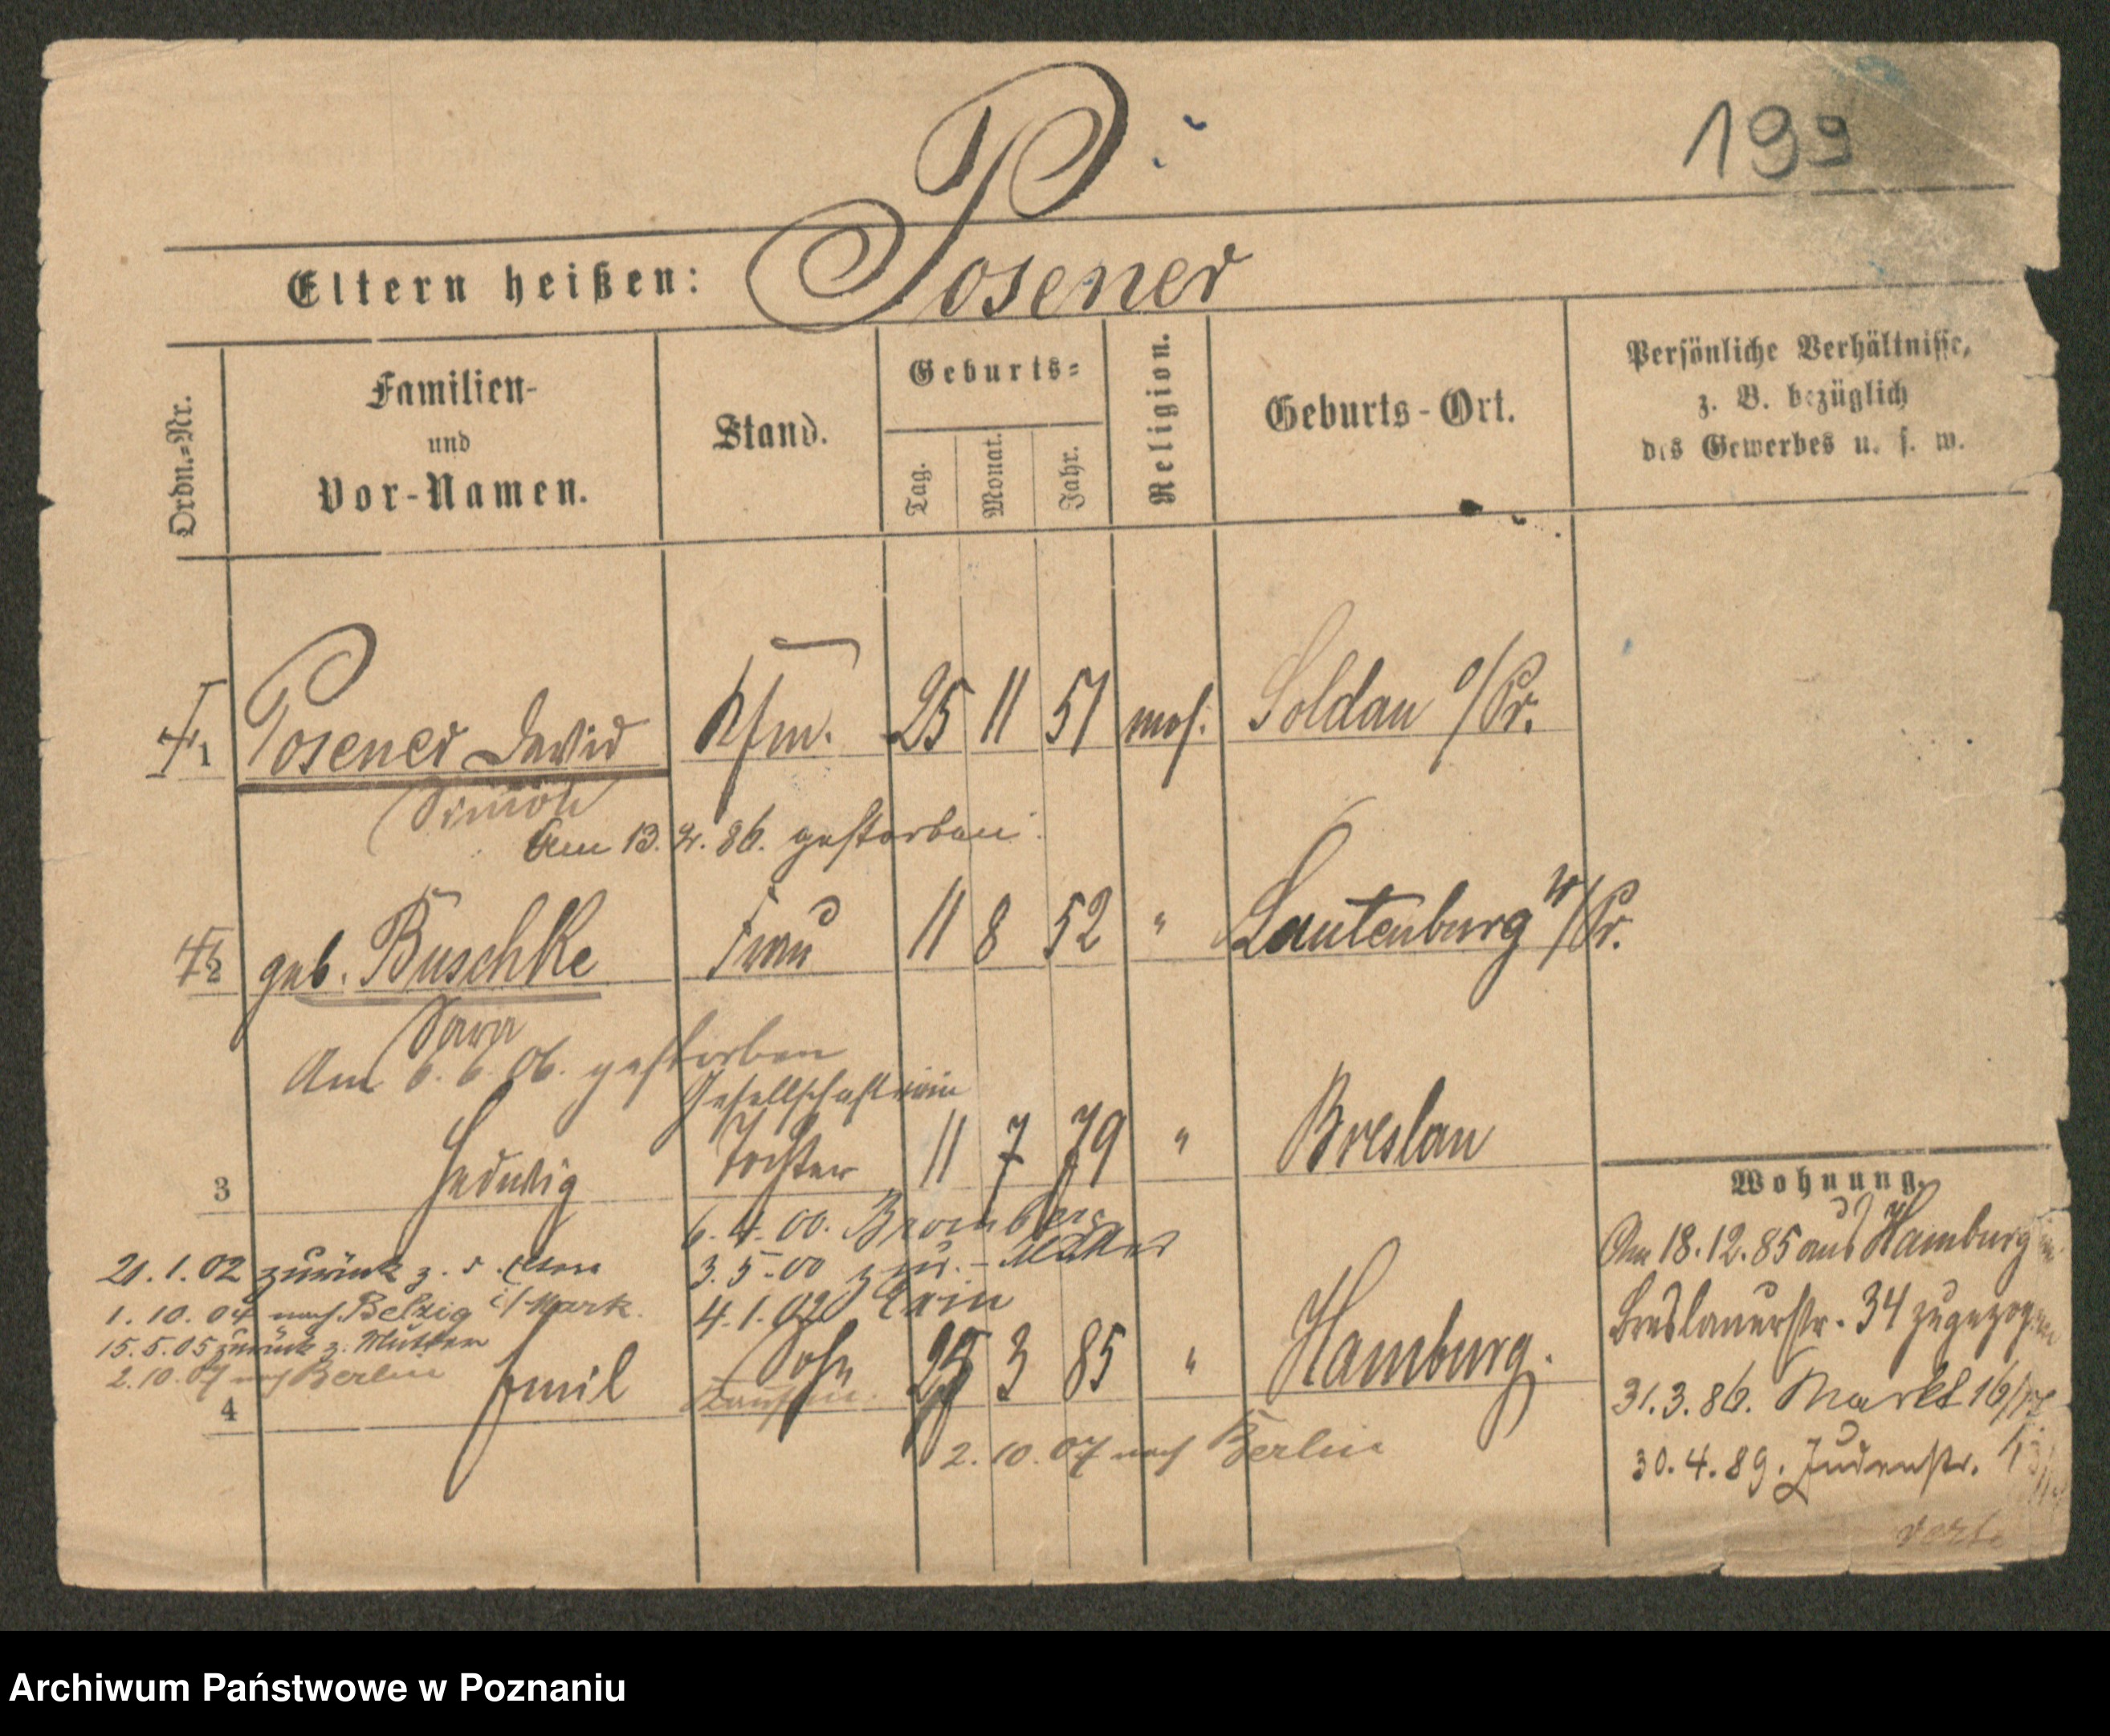 199
Eltern heißen: Posener
Ordn.=Nr.
Familien-
und
Vor-Namen.
Stand.
Geburts=
Tag.
Monat.
Jahr.
Religion.
Geburts-Ort.
Persönliche Verhältnisse,
z. B. bezüglich
des Gewerbes u. s. w.
1 Posener David Kfm. 25 11 51 mos. Soldau o/Pr.
Simon
Am 13. 2. 86. gestorben.
2 geb. Buschke Frau 11 8 52 " Lautenburg W/Pr.
Sara
Am 6. 6. 06. gestorben
Gesellschafterin
3 Hedwig Tochter 11 7 79 " Breslau
6. 4. 00. Bromberg
3. 5. 00 zur. - Mutter
4. 1. 02 Exin
21. 1. 02 zurück z. d.
1. 10. 04 nach Belzig i/Mark.
15. 5. 05 zurück z. Mutter
2. 10. 07 nach Berlin
4 Emil Sohn 3 85 " Hamburg.
2. 10. 07 nach Berlin
Wohnung.
Am 18. 12. 85 aus Hamburg
Breslauerstr. 34 zugezogen
31. 3. 86. Markt 16/17
30. 4. 89. Judenstr.
verte
Archiwum Państwowe w Poznaniu